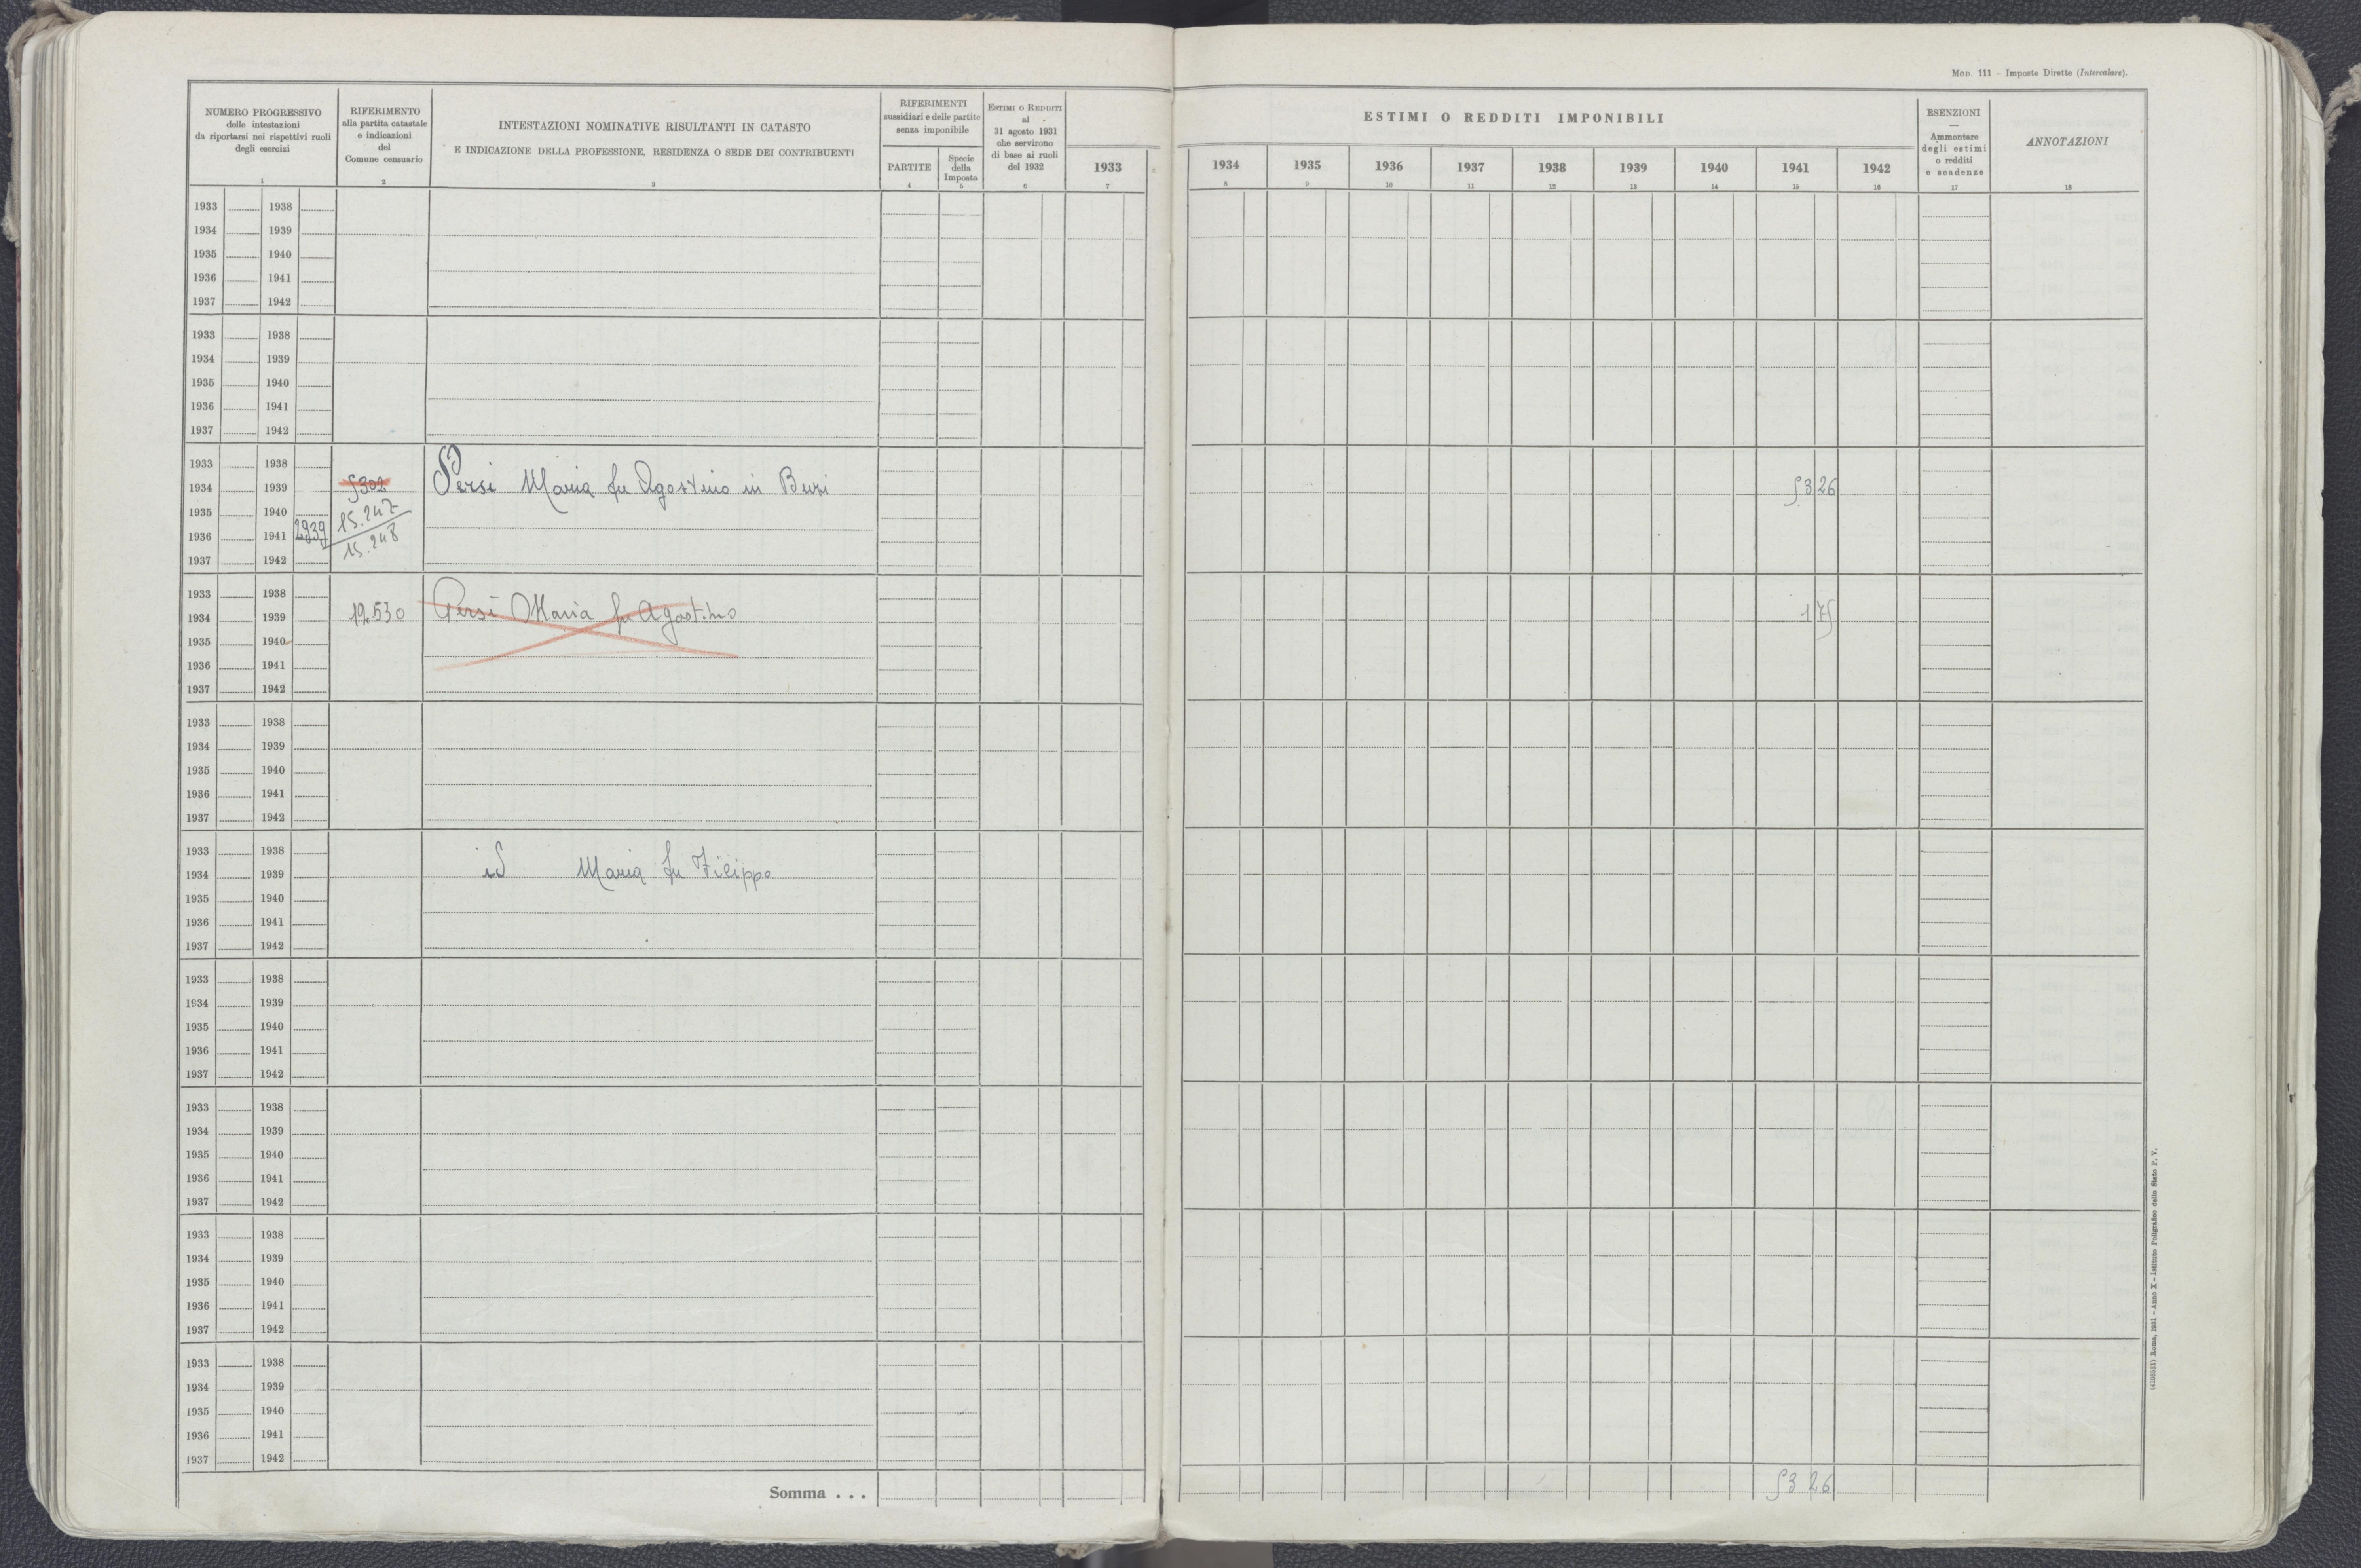 MOD. 111 – Imposte Dirette (Intercalare).
NUMERO PROGRESSIVO
delle intestazioni
da riportarsi nei rispettivi ruoli
degli esercizi
1
RIFERIMENTO
alla partita catastale
e indicazioni
del
Comune censuario
2
INTESTAZIONI NOMINATIVE RISULTANTI IN CATASTO
E INDICAZIONE DELLA PROFESSIONE, RESIDENZA O SEDE DEI CONTRIBUENTI
3
RIFERIMENTI
sussidiari e delle partite
senza imponibile
PARTITE
4
Specie
della
Imposta
5
ESTIMI O REDDITI
al
31 agosto 1931
che servirono
di base ai ruoli
del 1932
6
1933
7
ESTIMI O REDDITI IMPONIBILI
1934 1935 1936 1937 1938 1939 1940 1941 1942
8 9 10 11 12 13 14 15 16
ESENZIONI
—
Ammontare
degli estimi
o redditi
e scadenze
17
ANNOTAZIONI
18
1933 1938
1934 1939
1935 1940
1936 1941
1937 1942
1933 1938
1934 1939
1935 1940
1936 1941
1937 1942
1933 1938
1934 1939 5302 Persi Maria fu Agostino in Buzi 53 26
1935 1940 15.247
1936 1941 2939 15.248
1937 1942
1933 1938
1934 1939 12530 Persi Maria fu Agostino 1 75
1935 1940
1936 1941
1937 1942
1933 1938
1934 1939
1935 1940
1936 1941
1937 1942
1933 1938
1934 1939 id Maria fu Filippo
1935 1940
1936 1941
1937 1942
1933 1938
1934 1939
1935 1940
1936 1941
1937 1942
1933 1938
1934 1939
1935 1940
1936 1941
1937 1942
1933 1938
1934 1939
1935 1940
1936 1941
1937 1942
1933 1938
1934 1939
1935 1940
1936 1941
1937 1942
Somma . . . 53 26
Roma, 1931 – Anno X – Istituto Poligrafico dello Stato P. V.